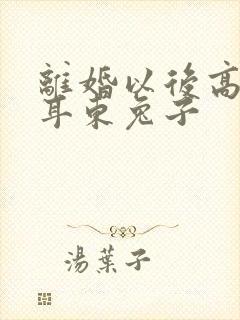 離婚以後高
耳東兔子
湯葉子